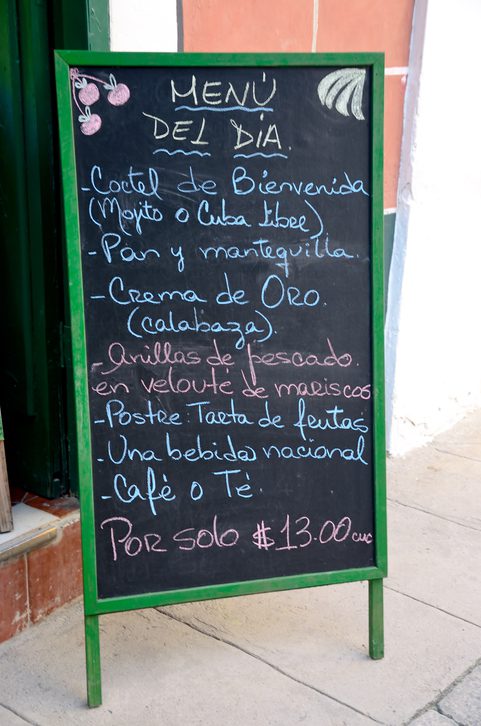 MENÚ
DEL DÍA.
-Coctel de Bienvenida
(Mojito o Cuba libre)
-Pan y mantequilla.
-Crema de Oro.
(calabaza).
-Anillas de pescado.
en velouté de mariscos
-Postre: Tarta de frutas
-Una bebida nacional
-Café o Té.
Por solo $13.00 cuc